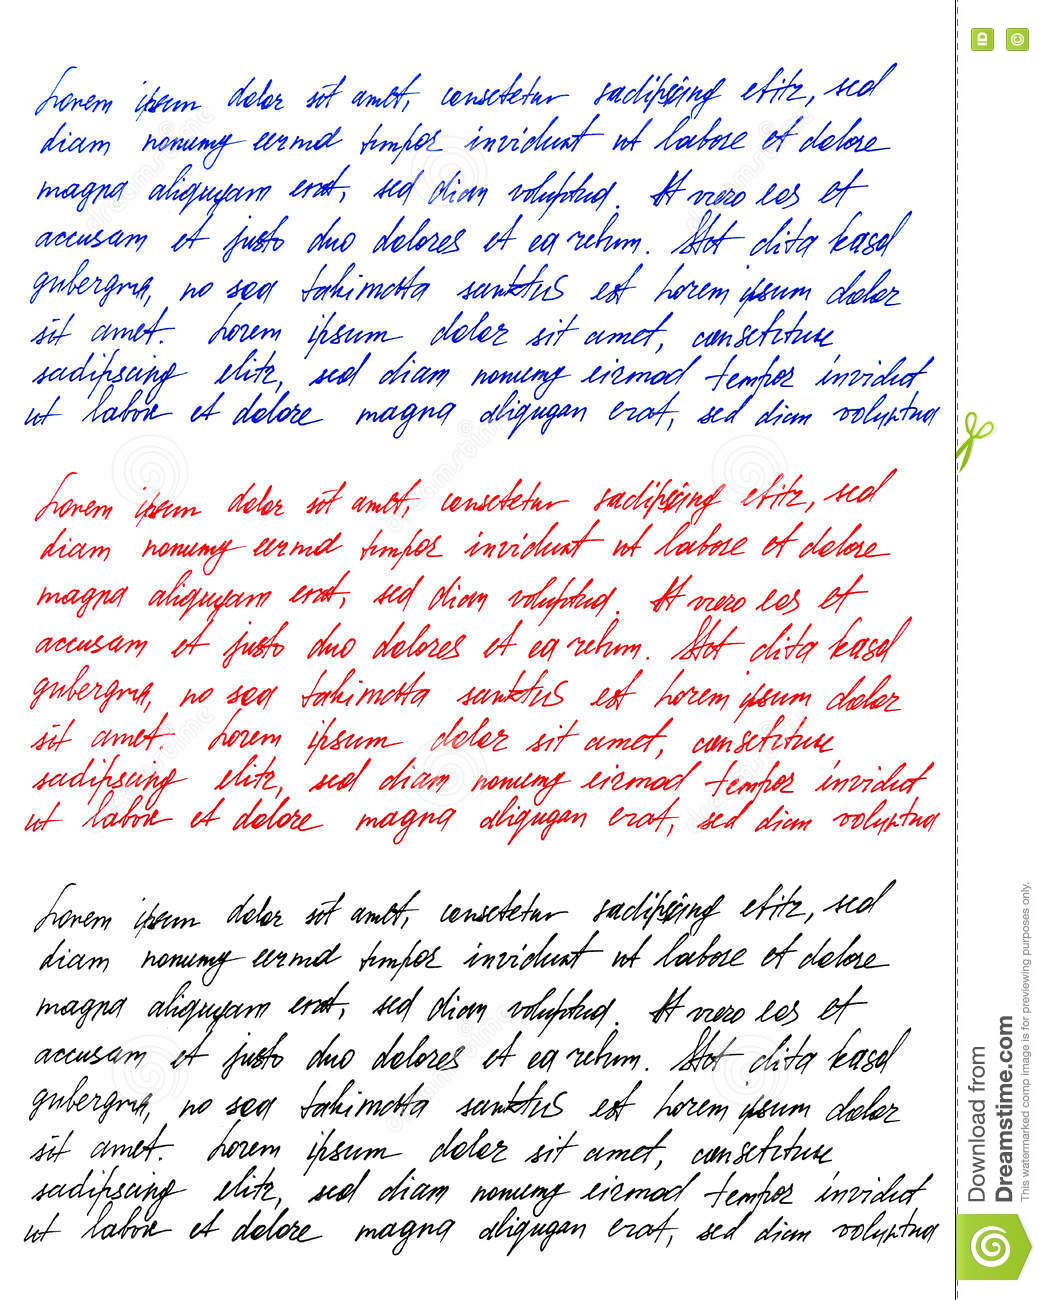 Lorem ipsum dolor sit amet, consetetur sadipscing elitr, sed
diam nonumy eirmod tempor invidunt ut labore et dolore
magna aliquyam erat, sed diam voluptua. At vero eos et
accusam et justo duo dolores et ea rebum. Stet clita kasd
gubergren, no sea takimata sanktus est Lorem ipsum dolor
sit amet. Lorem ipsum dolor sit amet, consetetur
sadipscing elitr, sed diam nonumy eirmod tempor invidut
ut labore et dolore magna aliqugan erat, sed diam voluptua
Lorem ipsum dolor sit amet, consetetur sadipscing elitr, sed
diam nonumy eirmod tempor invidunt ut labore et dolore
magna aliquyam erat, sed diam voluptua. At vero eos et
accusam et justo duo dolores et ea rebum. Stet clita kasd
gubergren, no sea takimata sanktus est Lorem ipsum dolor
sit amet. Lorem ipsum dolor sit amet, consetetur
sadipscing elitr, sed diam nonumy eirmod tempor invidut
ut labore et dolore magna aliqugan erat, sed diam voluptua
Lorem ipsum dolor sit amet, consetetur sadipscing elitr, sed
diam nonumy eirmod tempor invidunt ut labore et dolore
magna aliquyam erat, sed diam voluptua. At vero eos et
accusam et justo duo dolores et ea rebum. Stet clita kasd
gubergren, no sea takimata sanktus est Lorem ipsum dolor
sit amet. Lorem ipsum dolor sit amet, consetetur
sadipscing elitr, sed diam nonumy eirmod tempor invidut
ut labore et dolore magna aliqugan erat, sed diam voluptua
ID
©
Download from
Dreamstime.com
This watermarked comp image is for previewing purposes only.